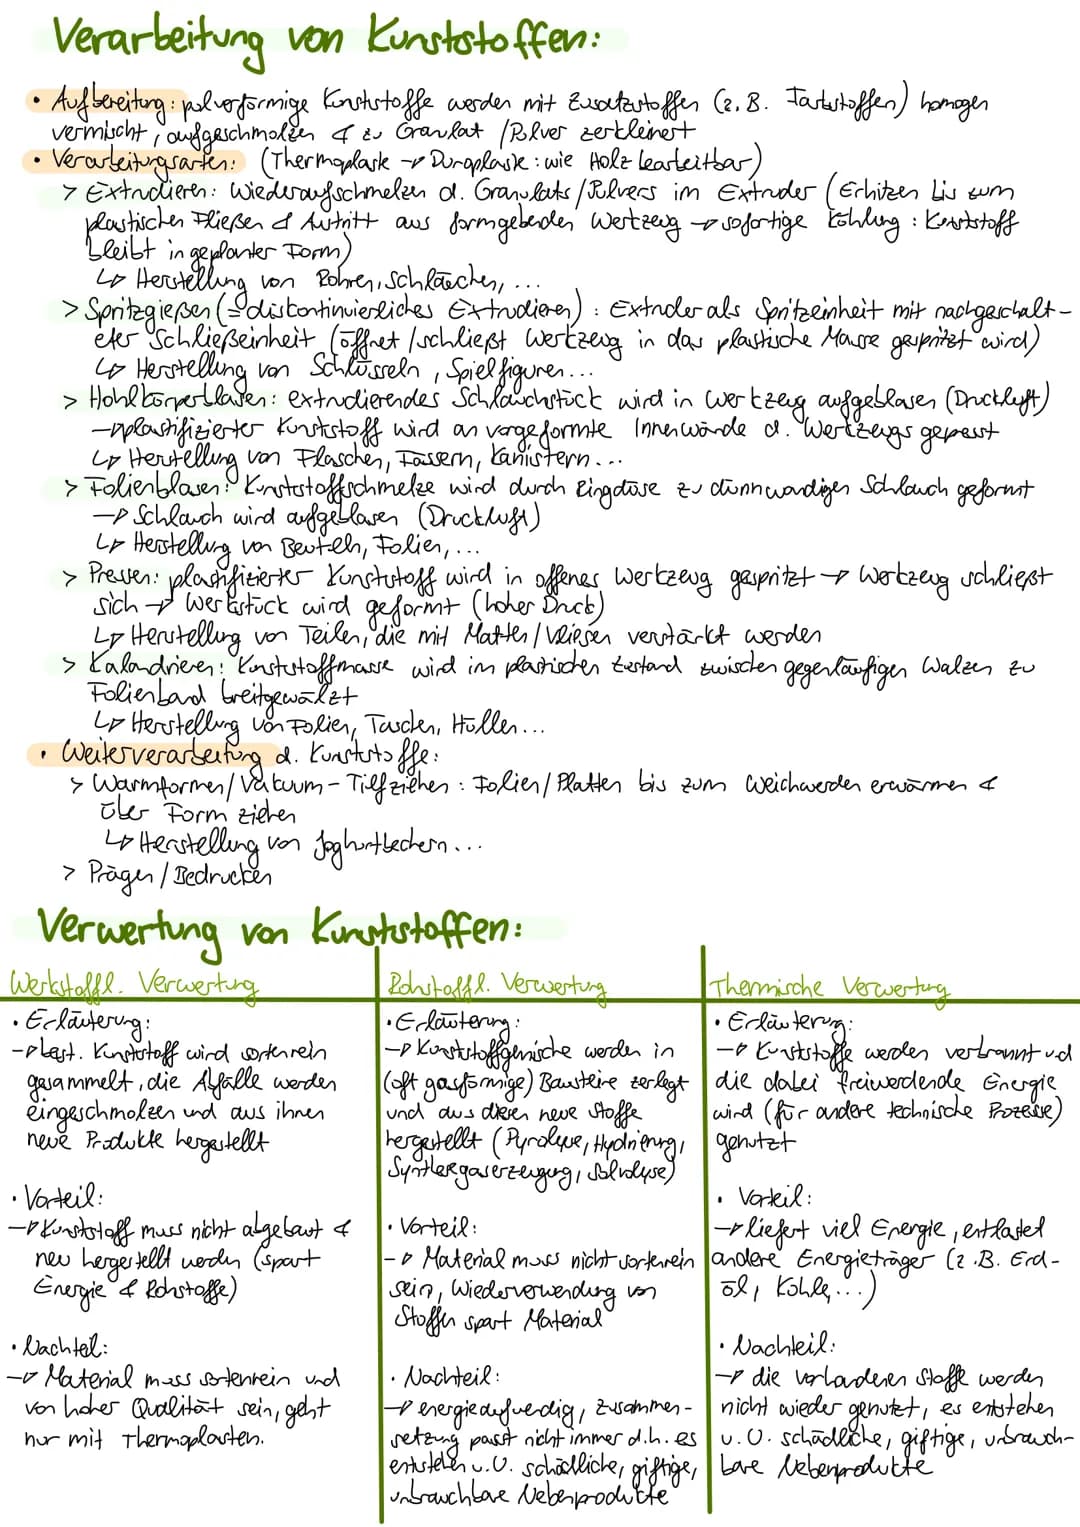 Verarbeitung von Kunststoffen:
• Aufbereitung: pulverförmige Kunststoffe werden mit Zusatzstoffen (z. B. Farbstoffen) homogen
vermischt, aufgeschmolzen & zu Granulat / Pulver zerkleinert
• Verarbeitungsarten: (Thermoplaste → Duroplaste: wie Holz bearbeitbar)
> Extrudieren: Wiederaufschmelzen d. Granulats / Pulvers im Extruder (Erhitzen bis zum
plastischen Fließen & Austritt aus formgebenden Werkzeug → sofortige Kühlung: Kunststoff
bleibt in geplanter Form)
↳ Herstellung von Rohren, Schläuchen, ...
> Spritzgießen (= diskontinuierliches Extrudieren): Extruder als Spritzeinheit mit nachgeschalt-
eter Schließeinheit (öffnet / schließt Werkzeug in das plastische Masse gespritzt wird)
↳ Herstellung von Schlüsseln, Spielfiguren...
> Hohlkörperblasen: extrudierendes Schlauchstück wird in Werkzeug aufgeblasen (Druckluft)
→ plastifizierter Kunststoff wird an vorgeformte Innenwände d. Werkzeugs gepresst
↳ Herstellung von Flaschen, Fässern, Kanistern...
> Folienblasen: Kunststoffschmelze wird durch Ringdüse zu dünnwandigen Schlauch geformt
→ Schlauch wird aufgeblasen (Druckluft)
↳ Herstellung von Beuteln, Folien, ...
> Pressen: plastifizierter Kunststoff wird in offenes Werkzeug gespritzt → Werkzeug schließt
sich → Werkstück wird geformt (hoher Druck)
↳ Herstellung von Teilen, die mit Matten / Vliesen verstärkt werden
> Kalandrieren: Kunststoffmasse wird im plastischen Zustand zwischen gegenläufigen Walzen zu
Folienband breitgewälzt
↳ Herstellung von Folien, Taschen, Hüllen...
• Weiterverarbeitung d. Kunststoffe:
> Warmformen / Vakuum-Tiefziehen: Folien / Platten bis zum Weichwerden erwärmen &
über Form ziehen
↳ Herstellung von Joghurtbechern...
> Prägen / Bedrucken
Verwertung von Kunststoffen:
Werkstoffl. Verwertung
• Erläuterung:
→ best. Kunststoff wird sortenrein
gesammelt, die Abfälle werden
eingeschmolzen und aus ihnen
neue Produkte hergestellt
• Vorteil:
→ Kunststoff muss nicht abgebaut &
neu hergestellt werden (spart
Energie & Rohstoffe)
• Nachteil:
→ Material muss sortenrein und
von hoher Qualität sein, geht
nur mit Thermoplasten.
Rohstoffl. Verwertung
• Erläuterung:
→ Kunststoffgemische werden in
(oft gasförmige) Bausteine zerlegt
und aus diesen neue Stoffe
hergestellt (Pyrolyse, Hydrierung,
Synthesegaserzeugung, Solvolyse)
• Vorteil:
→ Material muss nicht sortenrein
sein, Wiederverwendung von
Stoffen spart Material
• Nachteil:
→ energieaufwendig, Zusammen-
setzung passt nicht immer d.h. es
entstehen u.U. schädliche, giftige,
unbrauchbare Nebenprodukte
Thermische Verwertung
• Erläuterung:
→ Kunststoffe werden verbrannt und
die dabei freiwerdende Energie
wird (für andere technische Prozesse)
genutzt
• Vorteil:
→ liefert viel Energie, entlastet
andere Energieträger (z.B. Erd-
öl, Kohle,...)
• Nachteil:
→ die vorhandenen Stoffe werden
nicht wieder genutzt, es entstehen
u.U. schädliche, giftige, unbrauch-
bare Nebenprodukte